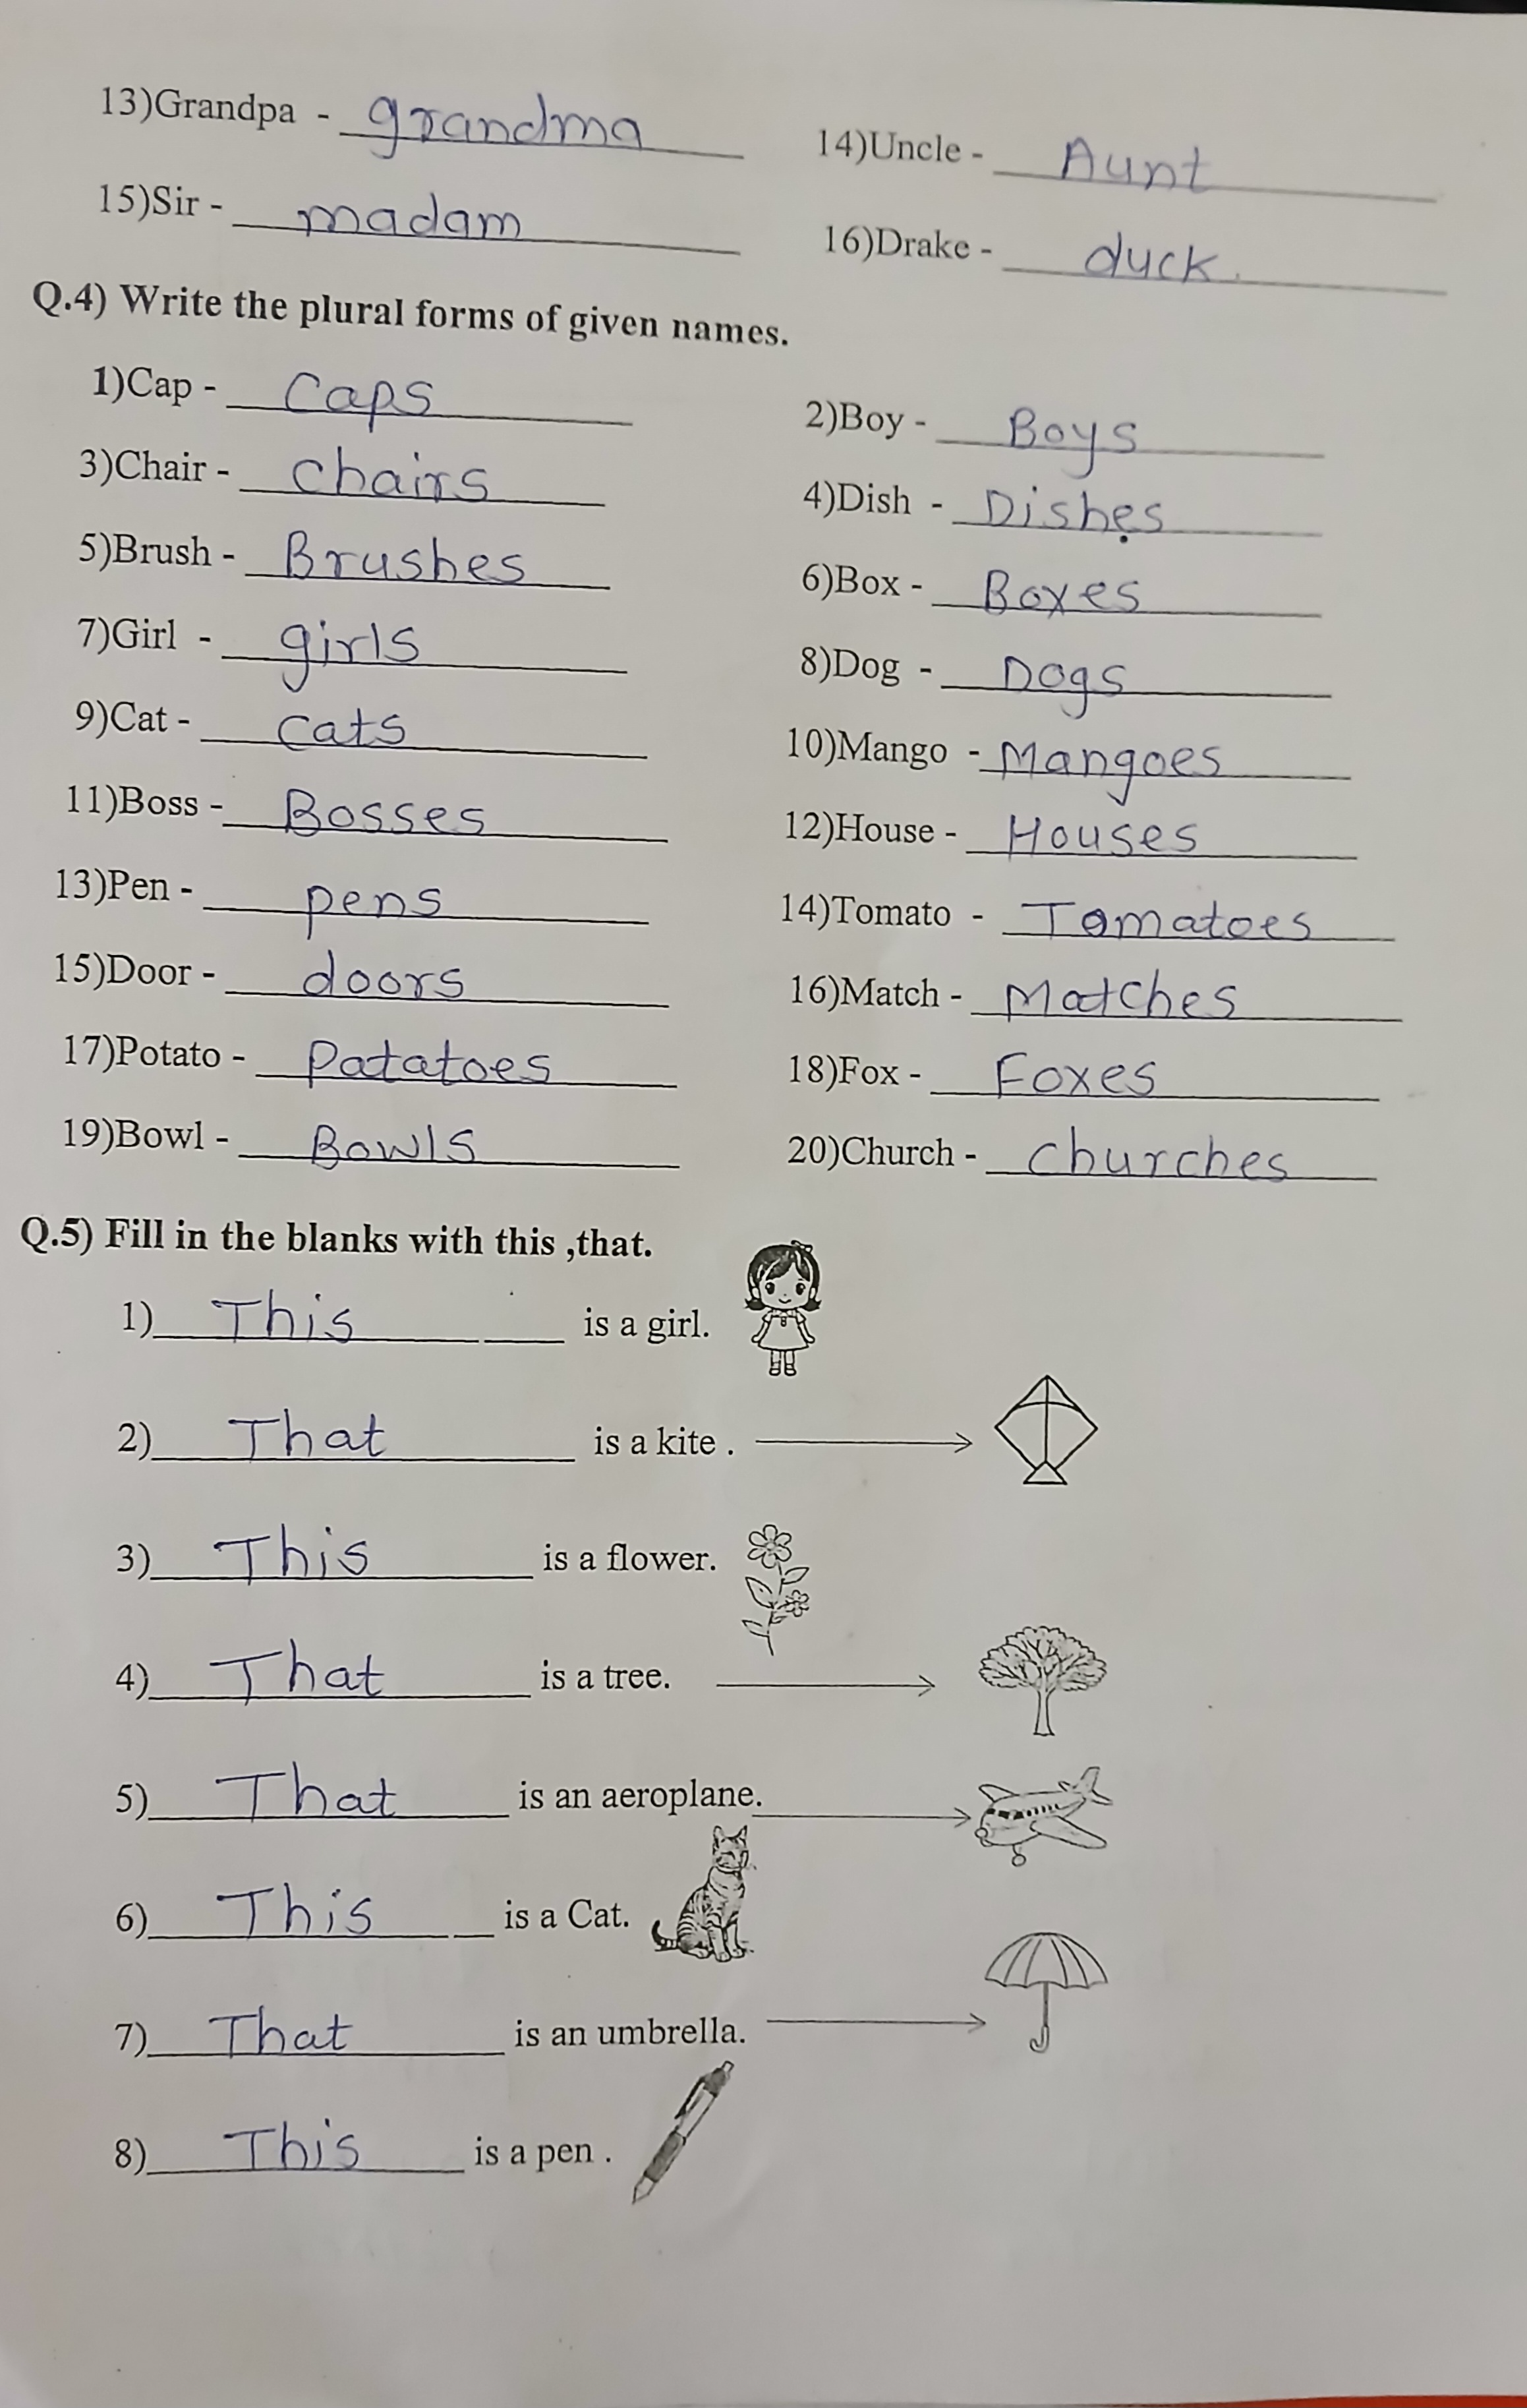 13)Grandpa - grandma 14)Uncle - Aunt
15)Sir - madam 16)Drake - duck.
Q.4) Write the plural forms of given names.
1)Cap - Caps 2)Boy - Boys
3)Chair - chairs 4)Dish - Dishes
5)Brush - Brushes 6)Box - Boxes
7)Girl - girls 8)Dog - Dogs
9)Cat - cats 10)Mango - Mangoes
11)Boss - Bosses 12)House - Houses
13)Pen - pens 14)Tomato - Tomatoes
15)Door - doors 16)Match - Matches
17)Potato - Patatoes 18)Fox - Foxes
19)Bowl - Bowls 20)Church - churches
Q.5) Fill in the blanks with this ,that.
1) This is a girl.
2) That is a kite .
3) This is a flower.
4) That is a tree.
5) That is an aeroplane.
6) This is a Cat.
7) That is an umbrella.
8) This is a pen .